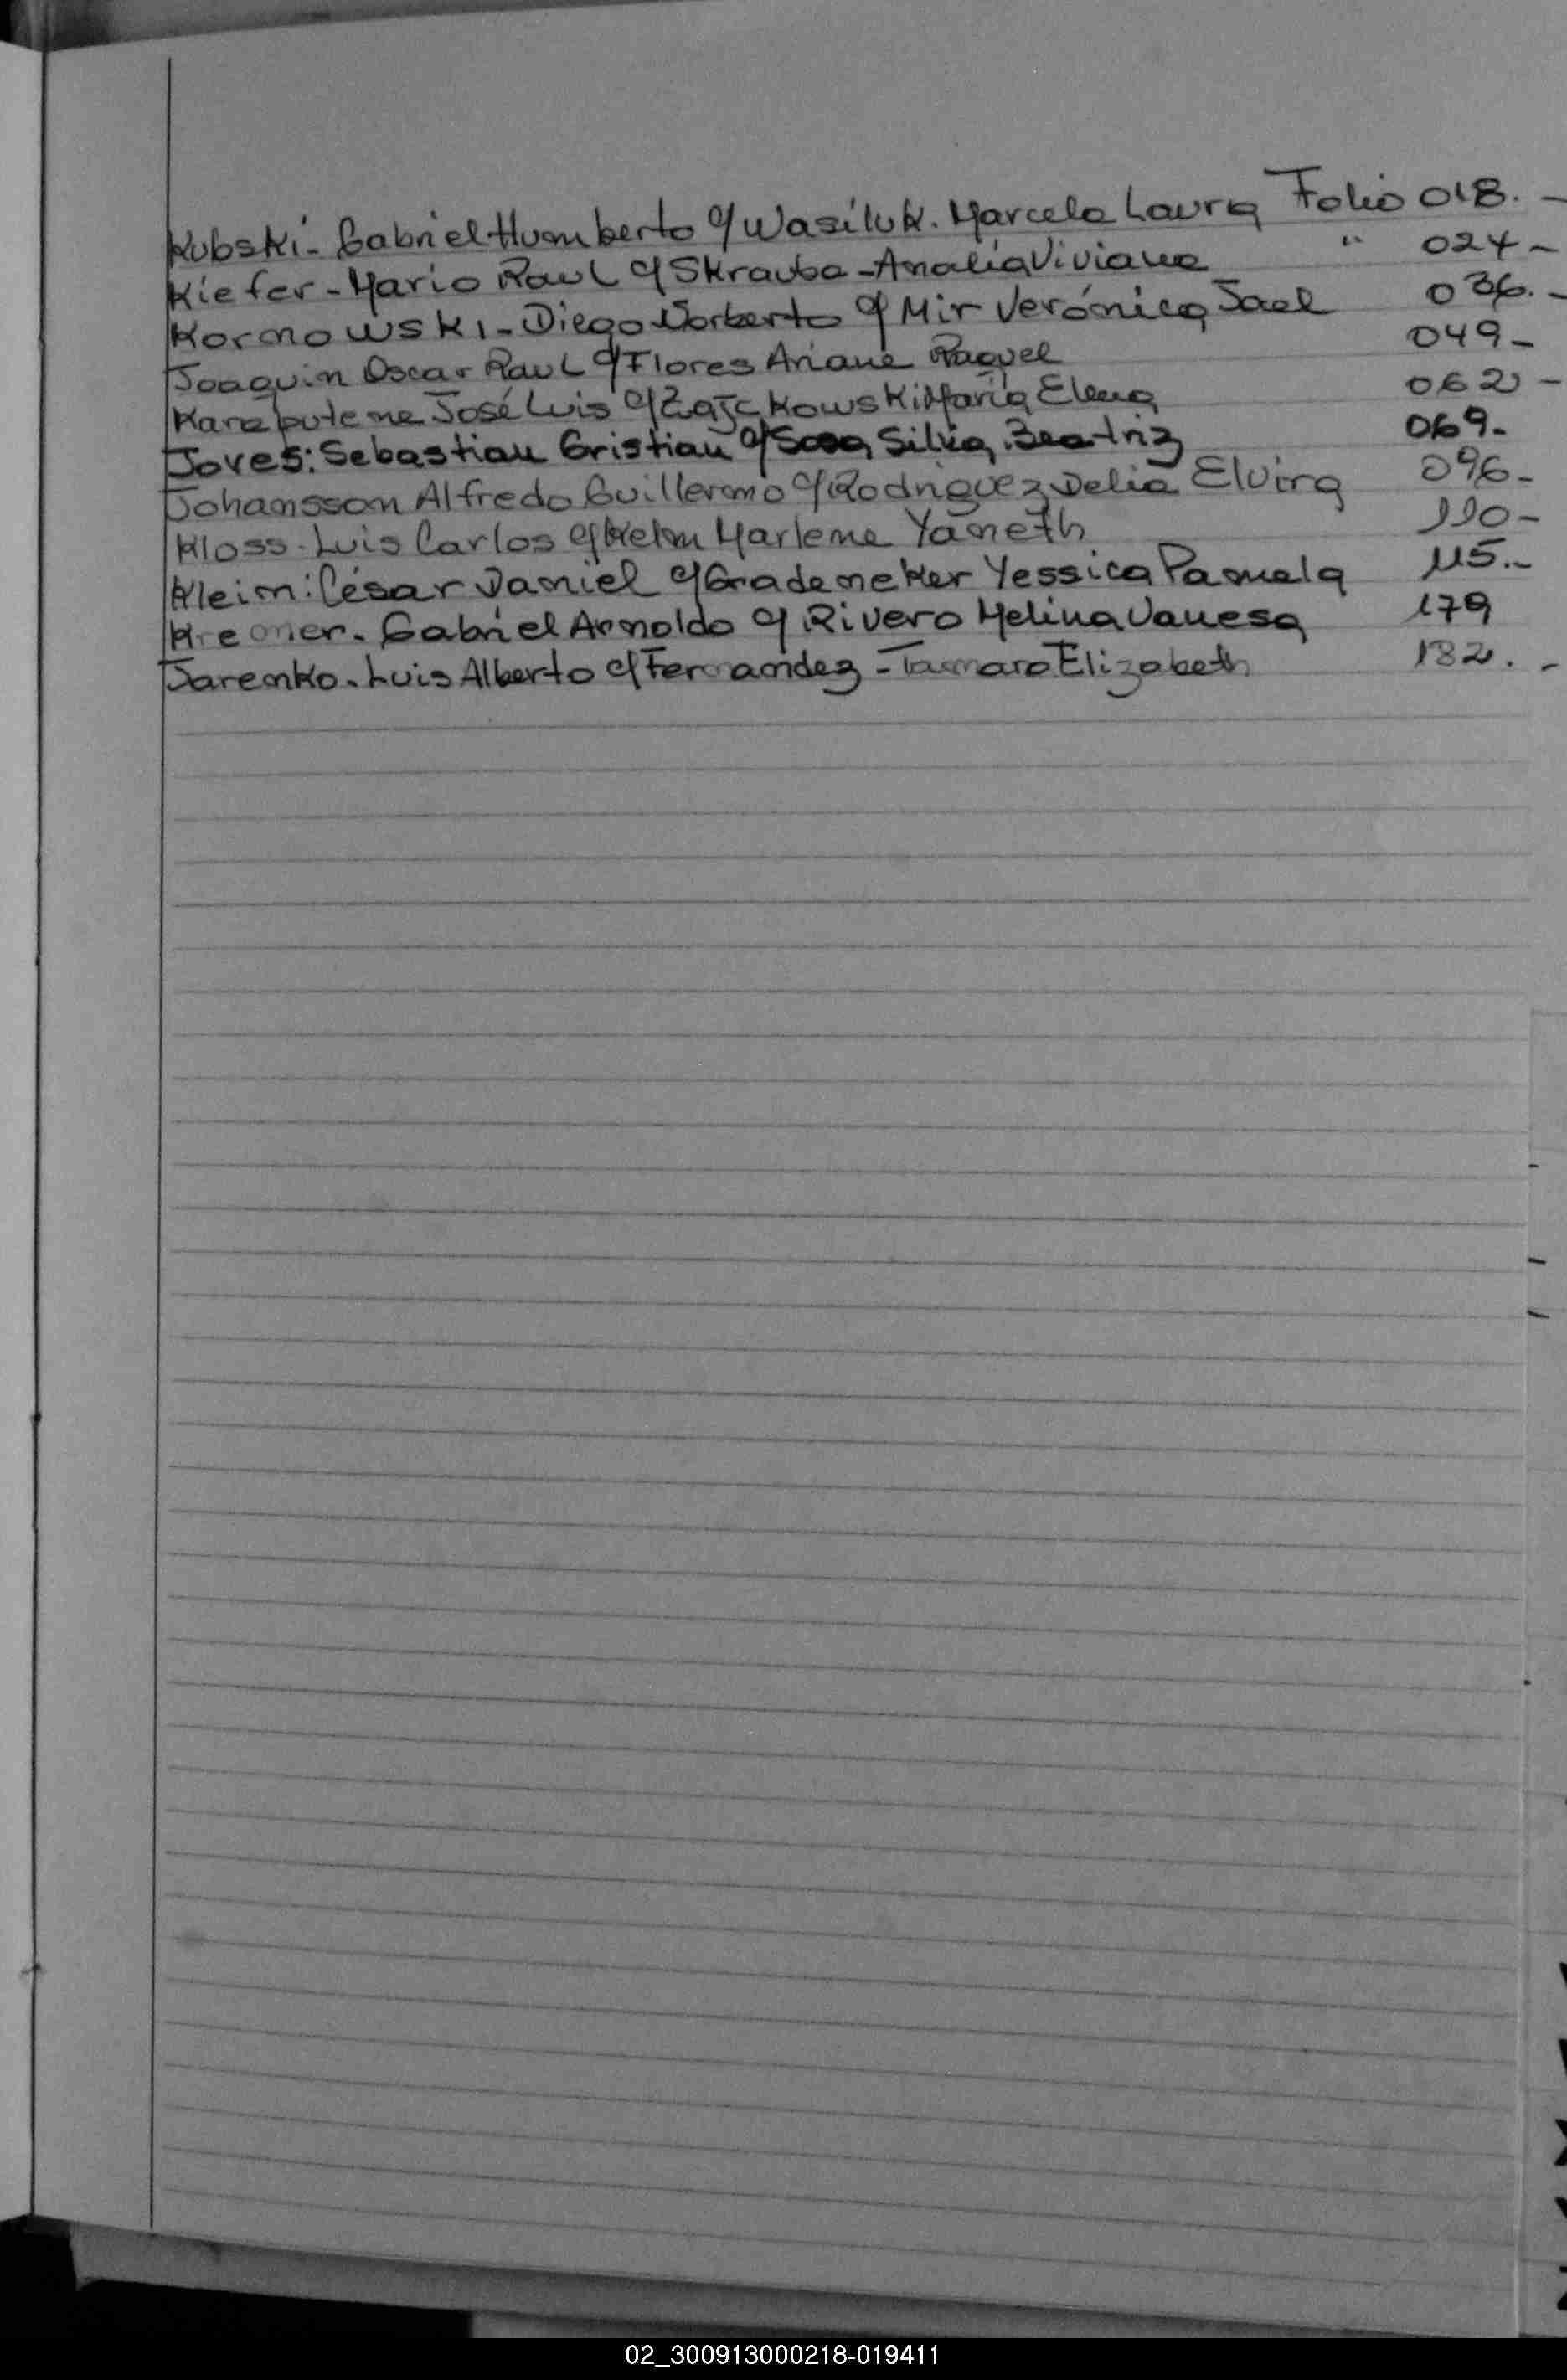 Kubski - Gabriel Humberto c/ Wasiluk. Marcela Laura Folio 018. -
Kiefer - Mario Raul c/ Skrauba - Analia Viviana " 024 -
Kornowski - Diego Norberto c/ Mir Verónica Jael 036. -
Joaquin Oscar Raul c/ Flores Ariane Raquel 049 -
Karabutene José Luis c/ Zajckowski María Elena 062 -
Joves: Sebastian Cristian c/ Sosa Silvia Beatriz 069 -
Johansson Alfredo Guillermo c/ Rodriguez Delia Elvira 096 -
Kloss - Luis Carlos c/ Kelm Marlene Yaneth 110 -
Klein: César Daniel c/ Grademeker Yessica Pamela 115. -
Kremer. Gabriel Arnoldo c/ Rivero Melina Vanesa 179
Jarenko. Luis Alberto c/ Fernandez - Tamara Elizabeth 182. -
02_300913000218-019411